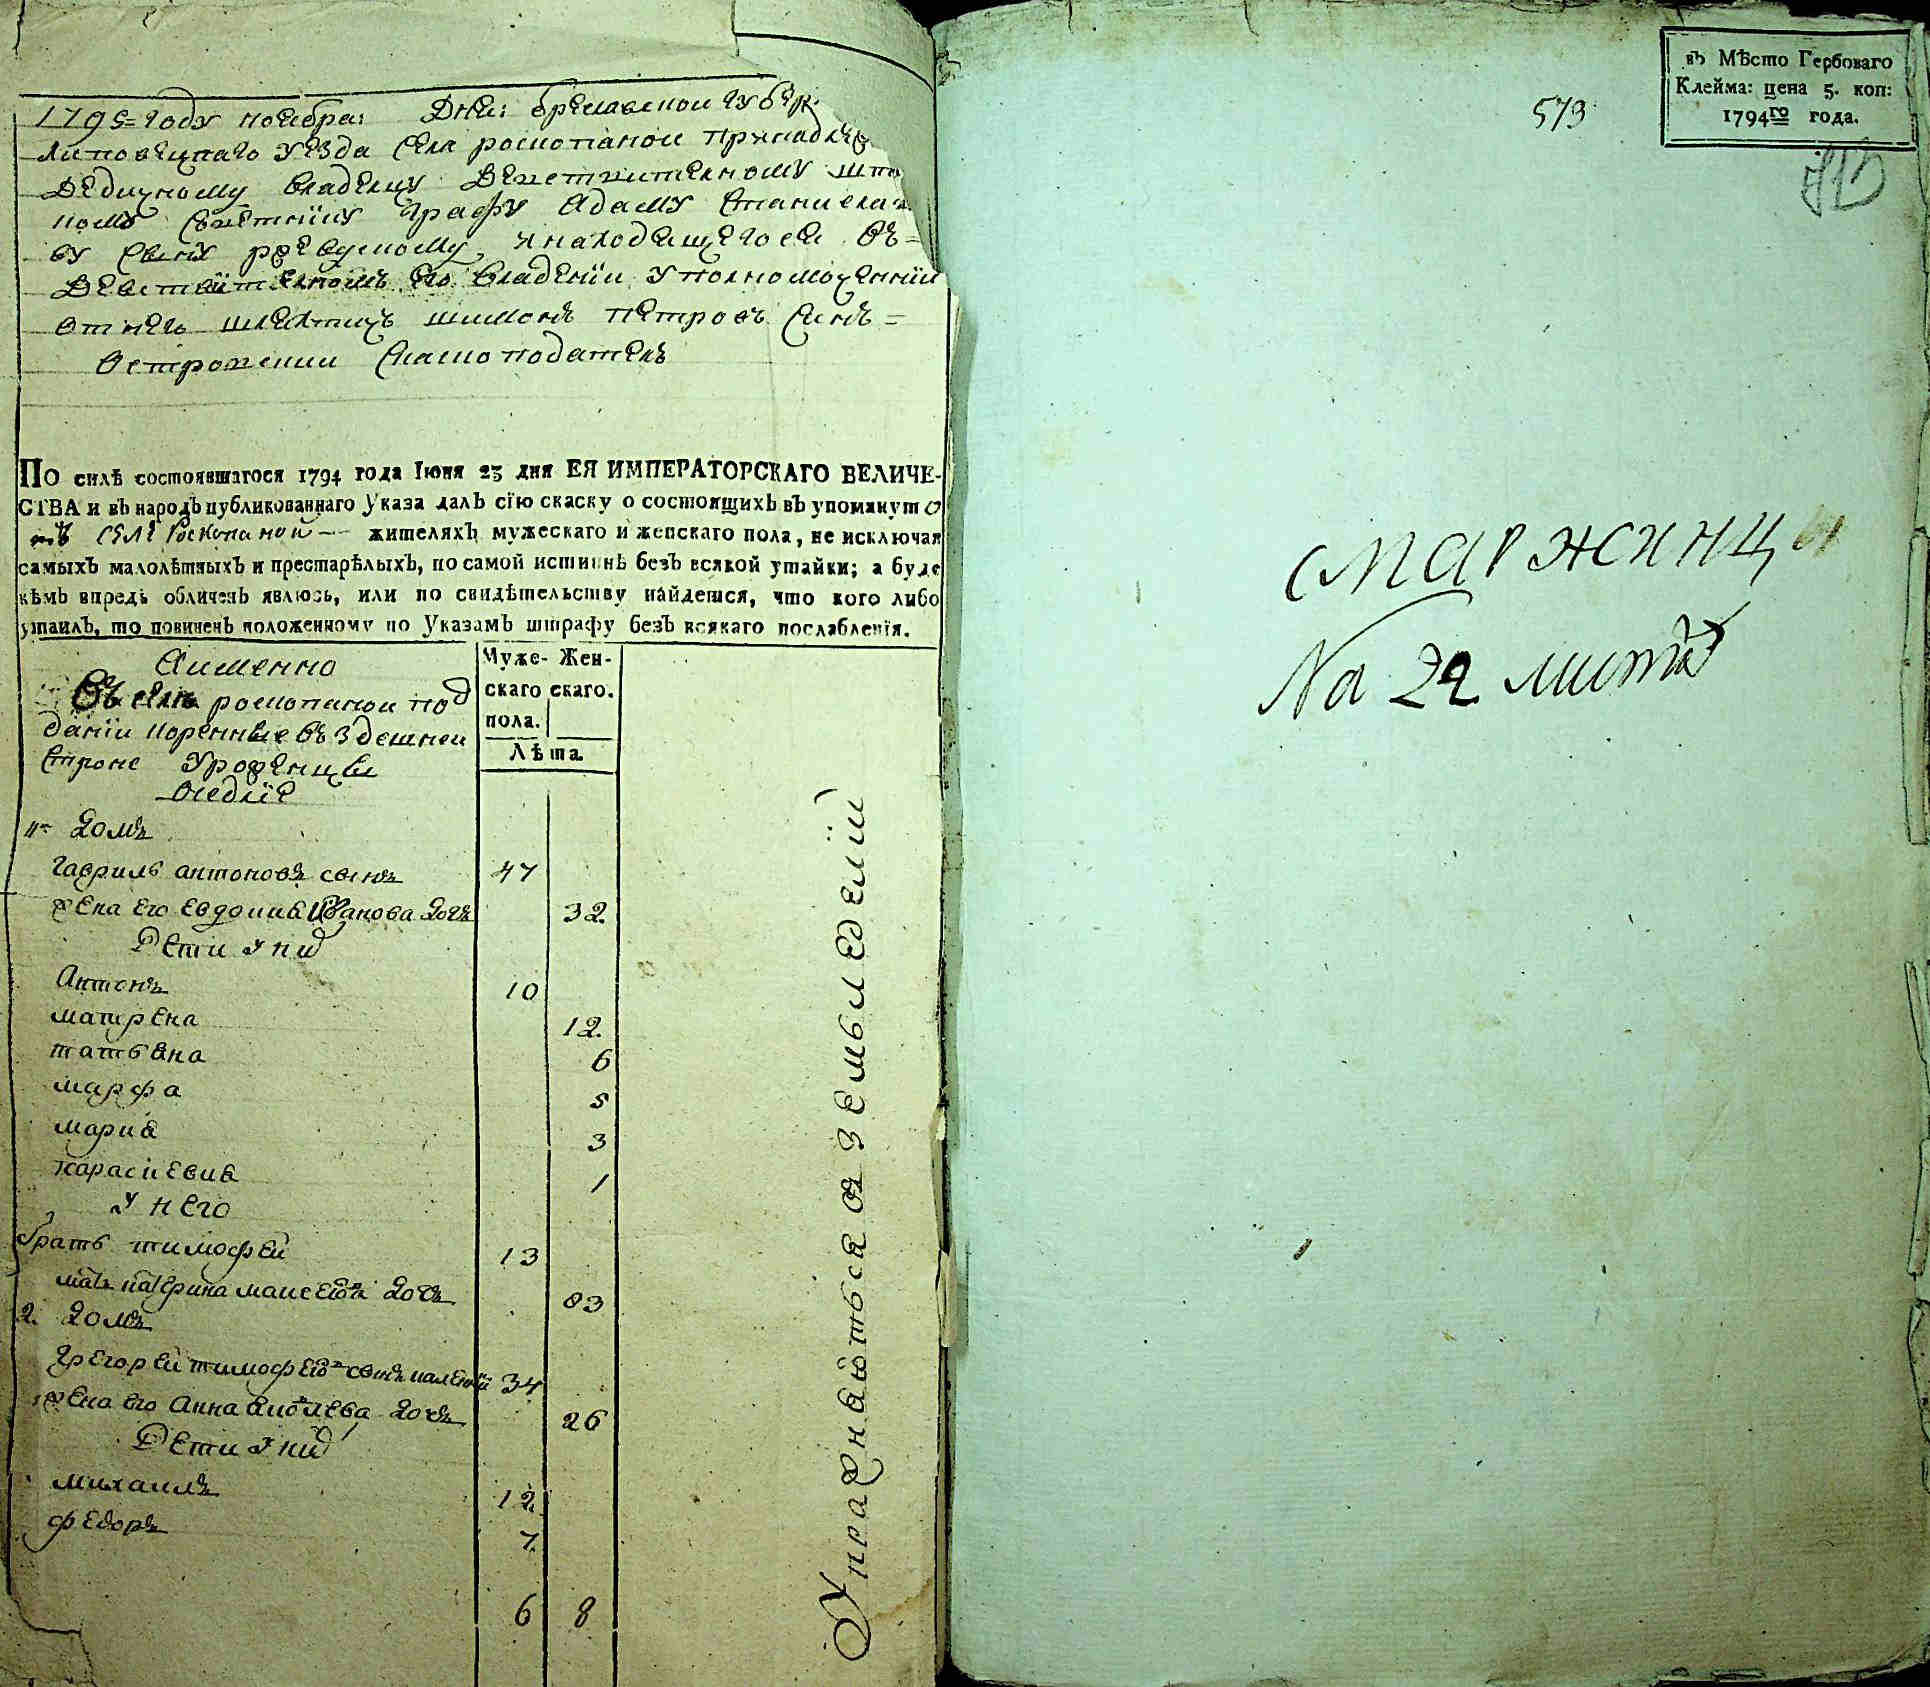 1795 = году ноебра: Дне: бреславской губер
липовецкаго уезда села роскопаной принадлеж
Дедичному владелцу Действителному
ному Советнику графу Адаму Станислав
ву сыну ржевускому, а находещегосе въ =
Действителномъ его владении уполномоченний
от него шлехтичъ шимонъ петровъ синъ =
Остроженски скаско податель
По силѣ состоявшагося 1794 года Іюня 23 дня ЕЯ ИМПЕРАТОРСКАГО ВЕЛИЧЕ-
СТВА и въ народъ публикованнаго Указа далъ сїю скаску о состоящихъ въ упомянуто
мъ селе Роскопаной — жителяхъ мужескаго и женскаго пола, не исключая
самыхъ малолѣтныхъ и престарѣлыхъ, по самой истиннѣ безъ всякой утайки; а буде
кѣмъ впредь обличенъ явлюсь, или по свидѣтельству найдется, что кого либо
утаилъ, то повиненъ положенному по Указамъ штрафу безъ всякаго послабленїя.
Аименно
Въ селе роскопаной под
дании коренные въ здешней
стороне уроженцы
Муже- Жен-
скаго скаго.
пола.
Лѣта.
1 = Домъ
гаврилъ антоновъ сынъ 47
жена его евдокия Иванова дочь 32
Дети у них
Антонъ 10
матрена 12.
татьяна 6
марфа 5
мария 3
параскевия 1
у него
братъ тимофей 13
мать катерина 83
2. Домъ
грегорей тимофеевъ сынъ 34
жена его Анна яковлева дочь 26
Дети у них
михаилъ 12.
федоръ 7.
6 8
Упражняютьса въ земьледелїй
въ Мѣсто Гербоваго
Клейма: цена 5. коп:
1794го года.
573
Маржинцы
На 22 листа